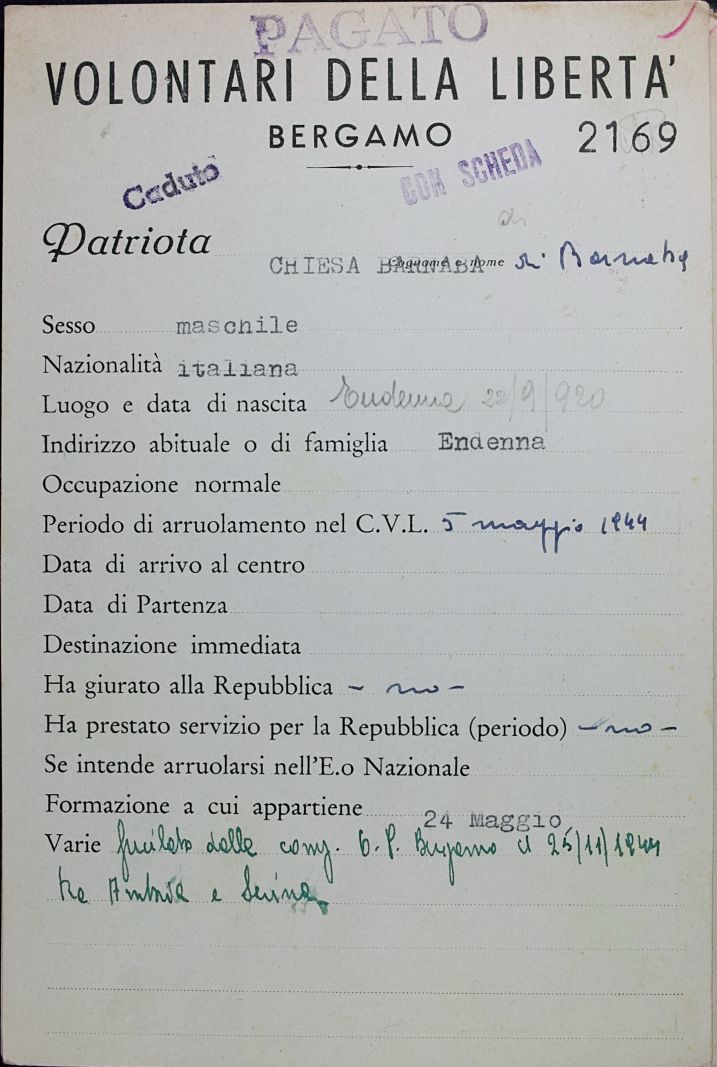 PAGATO
VOLONTARI DELLA LIBERTA'
BERGAMO 2169
Caduto CON SCHEDA
di
Patriota CHIESA BARNABA di Barnaba
Cognome e nome
Sesso maschile
Nazionalità italiana
Luogo e data di nascita Endenna 22/9/920
Indirizzo abituale o di famiglia Endenna
Occupazione normale
Periodo di arruolamento nel C.V.L. 5 maggio 1944
Data di arrivo al centro
Data di Partenza
Destinazione immediata
Ha giurato alla Repubblica - no -
Ha prestato servizio per la Repubblica (periodo) - no -
Se intende arruolarsi nell'E.o Nazionale
Formazione a cui appartiene 24 Maggio
Varie fucilato dalla comp. O.P. Bergamo il 25/11/1944
tra Ambria e Serina